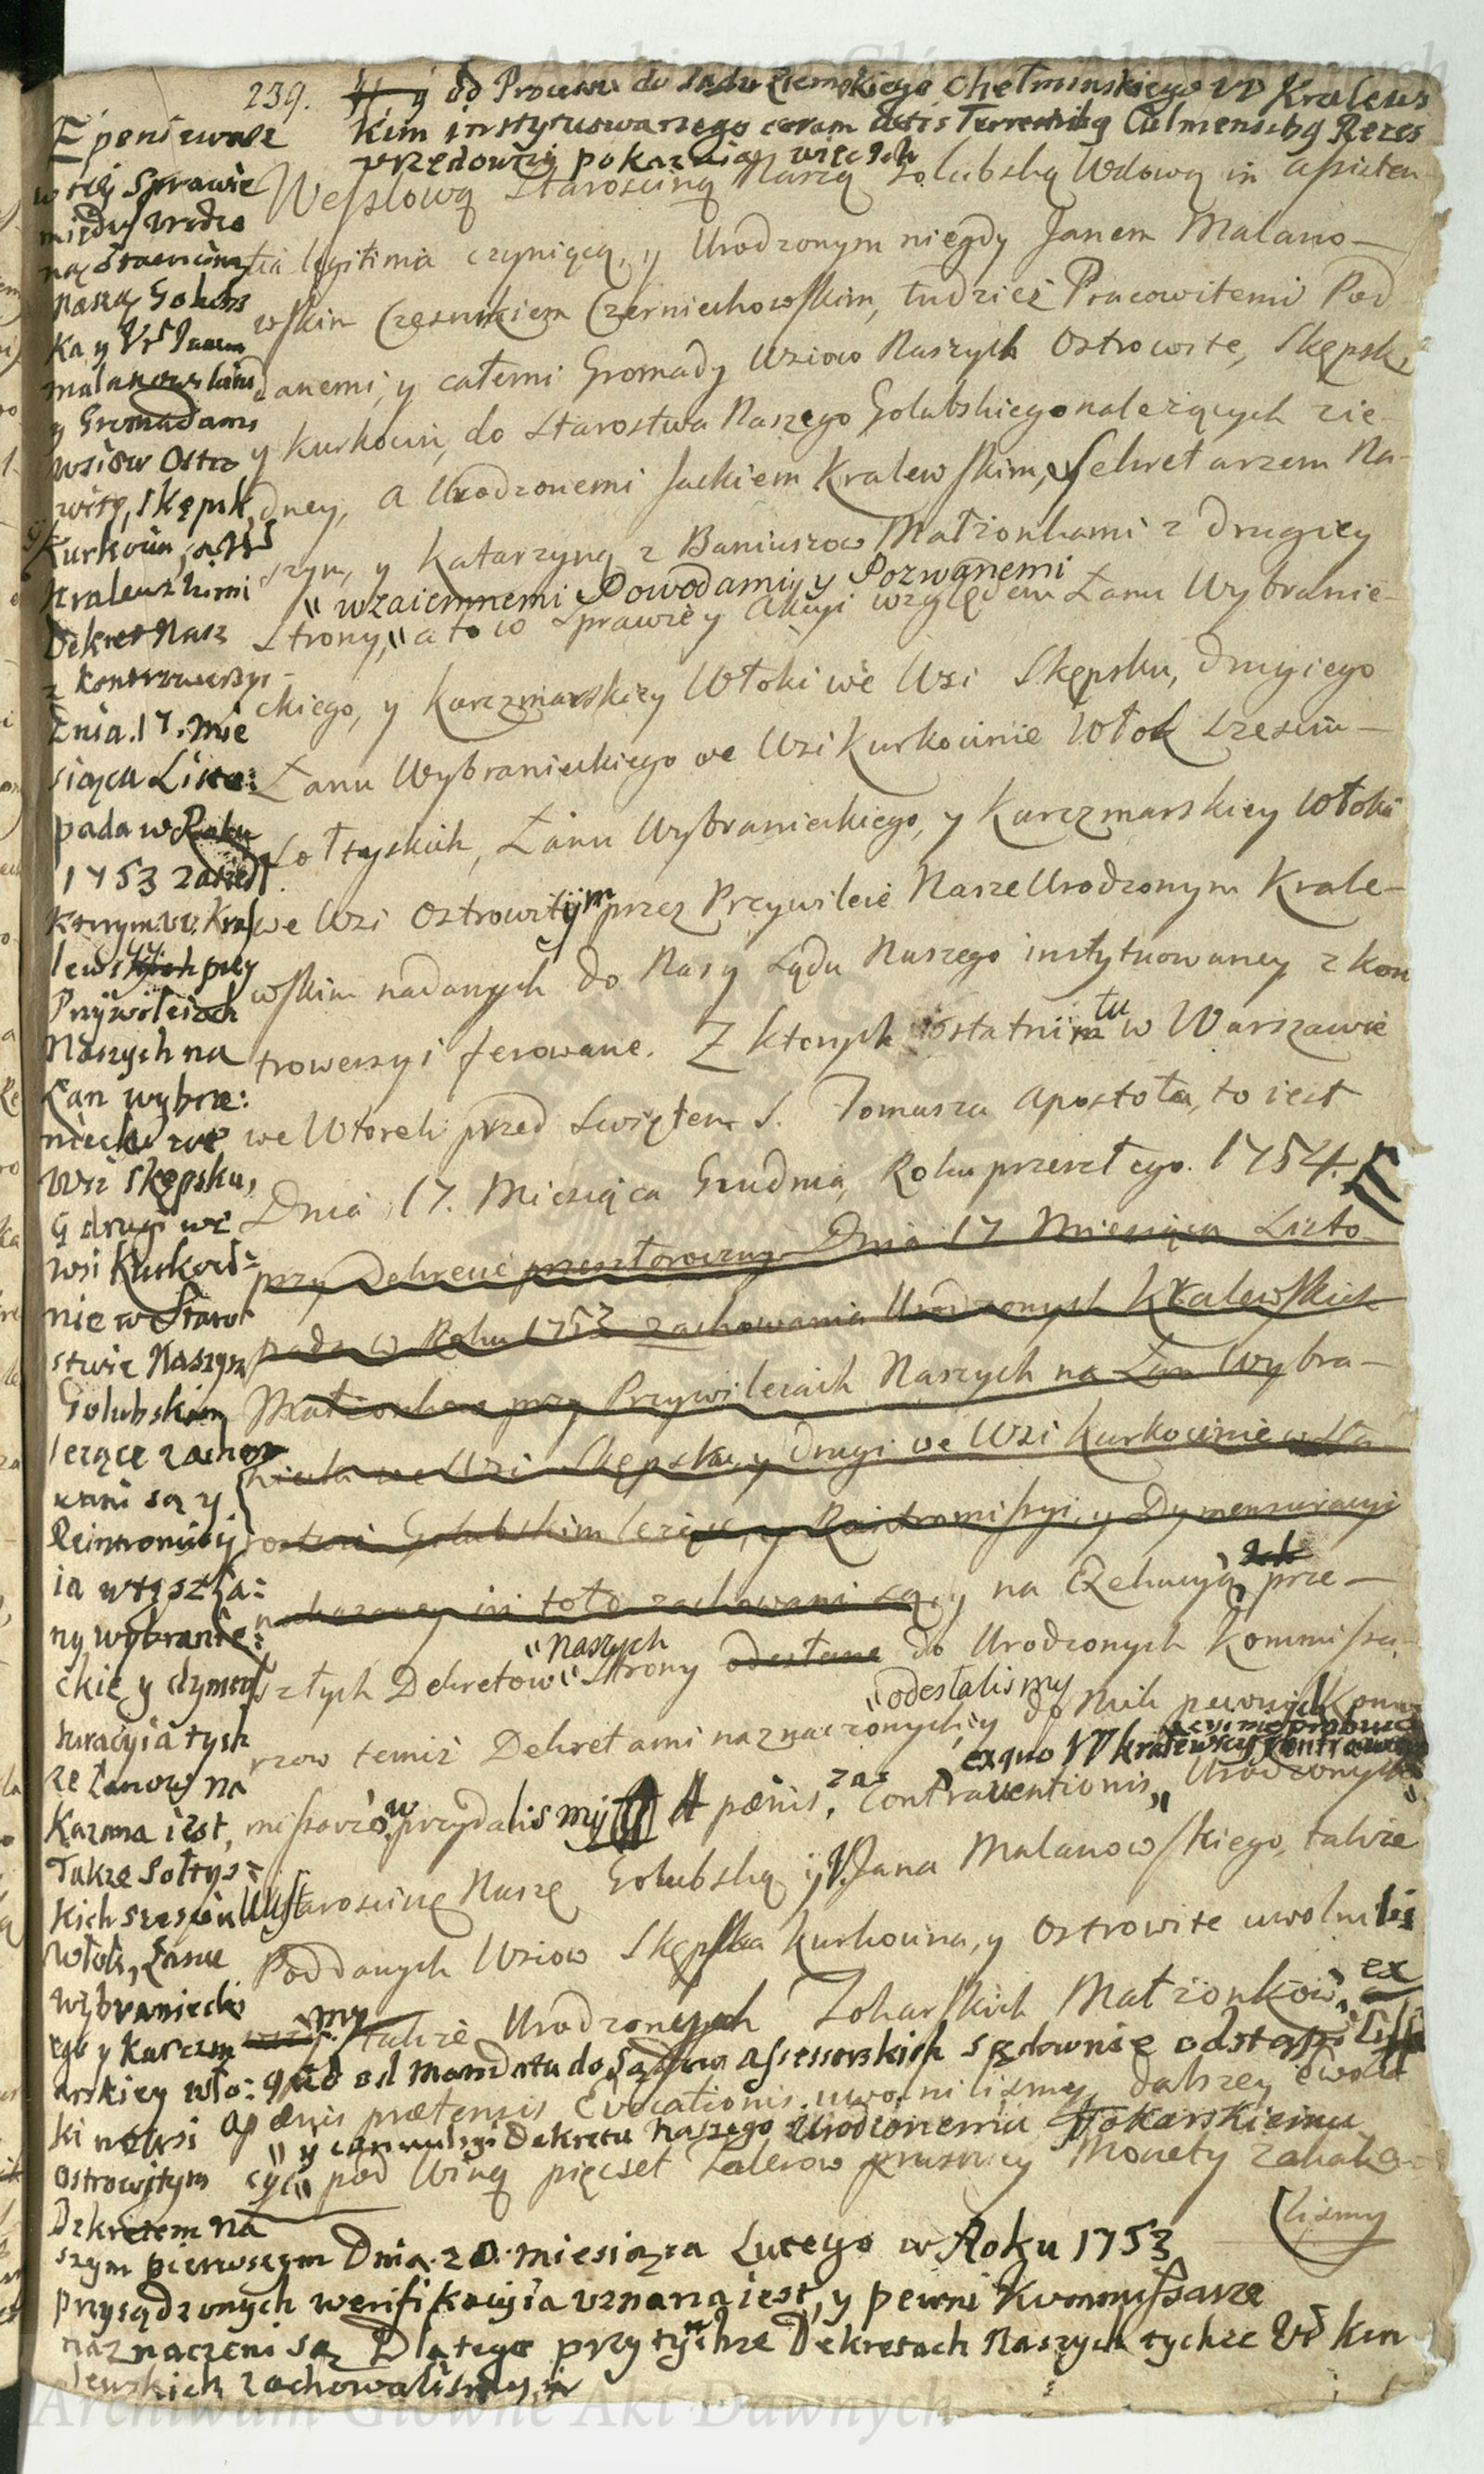 Archiwum Główne Akt Dawnych
239.
y od Procesu do Sądu Ziemskiego Chełminskiego VV Kralews
kim instytuowanego coram Actis Terrestribq Culmensibq Reces
vrzędowny pokazuiąc więcych
Wesslową Starosciną Naszą Golubską Wdową in assisten-
tia legitima czyniącą, y Urodzonym niegdy Janem Malano-
wskim Czesnikiem Czerniechowskim, tudzież Pracowitemi Pod
danemi, y całemi Gromady Wsiow Naszych Ostrowite, Skępsk,
y Kurkocin, do Starostwa Naszego Golubskiego należących z ie-
dney, a Urodzonemi Jackiem Kralewskim, Sekretarzem Na-
szym, y Katarzyną z Baniuszow Małżonkami z drugiey
"wzaiemnemi Powodami y Pozwanemi
Strony," a to w Sprawie y Akcyi względem Łanu Wybranie-
ckiego, y Karczmarskiey Włoki we Wsi Skępsku, drugiego
Łanu Wybranieckiego we Wsi Kurkocinie Włok szesciu-
Sołtyskich, Łanu Wybranieckiego, y Karczmarskiey Włoki
we Wsi Ostrowitym przez Przywileie Nasze Urodzonym Krale-
wskim nadanych do Nas y Sądu Naszego instytuowaney z kon
trowersyi ferowane. Z ktorych ostatnim tu w Warszawie
we Wtorek przed Swiętem S. Tomasza Apostoła, to iest
Dnia 17. Miesiąca Grudnia, Roku przeszłego. 1754.
przy Dekrecie przeszłorocznym Dnia 17 Miesiąca Listo-
pada w Roku 1753 zachowania Urodzonych Kralewskich
Małżonkow przy Przywileiach Naszych na Łan Wybra-
niecki we Wsi Skępsku, y drugi we Wsi Kurkocinie w Sta
rostwie Golubskim leżące, y Reintromissyi, y Dymensuracyi
nakazaney in toto zachowani są, y na Exekucyą prze-
szłych Dekretow "Naszych" Strony odesłane do Urodzonych Kommissa-
"odesłalismy
rzow temiż Dekretami naznaczonych, y do nich pewnych Kom
missarzow przydalismy A pœnis zaś Contraventionis,
ex quo VV Kralewscy Contraven
Urodzonych
Wstaroscinę Naszę Golubską y V. Jana Malanowskiego, także
Poddanych Wsiow Skępska Kurkocina, y Ostrowite uwolnilis
my. także Urodzonych Tokarskich Małżonkow, ex
quo od Mandatu do Sądow Assessorskich sądownie odstąpili
a pœnis prætensis Evocationis uwolnilismy, dalszey ewoka
"y conwulsyi Dekretu Naszego Urodzonemu Tokarskiemu
cyi" pod Winą pięcset Talerow pruskiey Monety zakaza-
lismy
E ponieważ
w tey Sprawie
między Vrodzo
ną Starosciną
Naszą Golubs
ką y Vr Janem
Malanowskim
y Gromadami
wsiow Ostro
wite, Skępsk,
y Kurkocin, a VV
Kralewskimi
Dekret Nasz
z Kontrowersyi
Dnia. 17. Mie
siąca Listo:
pada w Roku
1753 zaszedł
ktorym VV. Kra
lewscy przy
Przywileiach
Naszych na
Łan wybra:
niecki we
Wsi Skępsku,
y drugi we
wsi Kurkoci-
nie w Staro
stwie Naszym
Golubskim
leżące zacho
wani są y
Reintromissy
ia w też Ła:
ny wybranie:
ckie y dymen
suracyia tych
że Łanow na
kazana iest,
Także Sołtys=
kich szesciu
Włok, Łanu
wybranieck
ego y Karczm
arskiey wło:
ki we Wsi
Ostrowitym
Dekretem Na
szym pierwszym Dnia. 20. miesiąca Lutego w Roku 1753
przysądzonych werifikacyia vznana iest, y pewni Kommissarze
naznaczeni są Dlatego przy tychże Dekretach Naszych tychże Vr Kra
lewskich zachowalismy,
Archiwum Główne Akt Dawnych